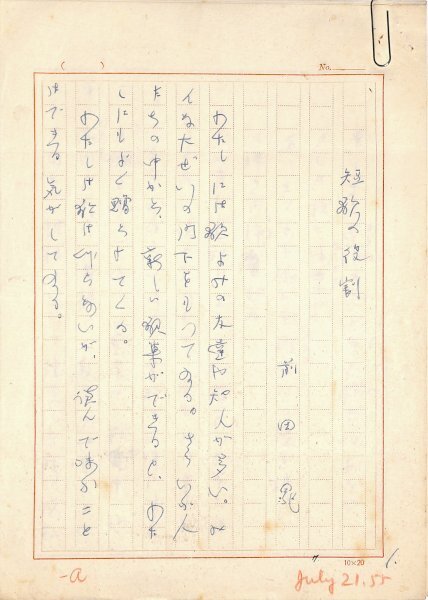 ( )
No.
短歌の役割
前田
わたしには歌よみの友達や知人が多い。み
んなたぜいの門下をもっている。そういう人
たちの中から、新しい歌集ができると、わた
しにもよく贈られてくる。
わたしは歌は作らないが、読んで味わうこと
はできる気がしている。
10×20
1.
-a
July 21.55